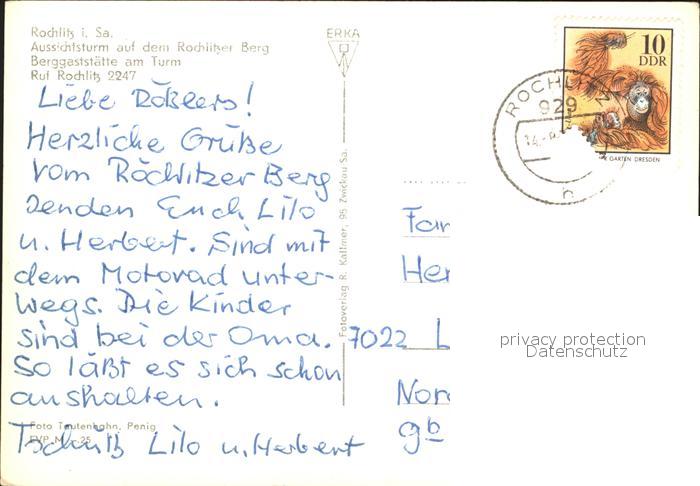 Rochlitz i. Sa.
Aussichtsturm auf dem Rochlitzer Berg
Berggaststätte am Turm
Ruf Rochlitz 2247
Liebe Rößlers!
Herzliche Grüße
vom Rochlitzer Berg
senden Euch Lilo
u. Herbert. Sind mit
dem Motorad unter-
wegs. Die Kinder
sind bei der Oma.
So läßt es sich schon
aushalten.
Foto Teutenhahn, Penig
Tschüß Lilo u. Herbert
ERKA
Fotoverlag R. Kallmer, 95 Zwickau Sa.
10
DDR
GARTEN DRESDEN
ROCHLI
929
h
Fam
Her
7022 L
Nor
9b
privacy protection
Datenschutz